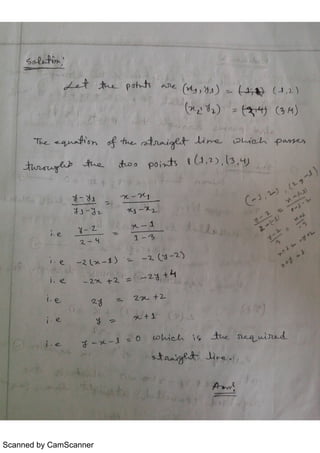 Solution:
Let the points are (x₁, y₁) = (1,2)
(x₂, y₂) = (3,4)
The equation of the straight line which passes
through the two points (1,2), (3,4)
y-y₁ / y₁-y₂ = x-x₁ / x₁-x₂
i.e y-2 / 2-4 = x-1 / 1-3
i.e -2(x-1) = -2(y-2)
i.e -2x +2 = -2y +4
i.e 2y = 2x +2
i.e y = x+1
i.e y-x-1 = 0 which is the required
straight line.
Ans:
(-1, 2), (2, -1)
Scanned by CamScanner